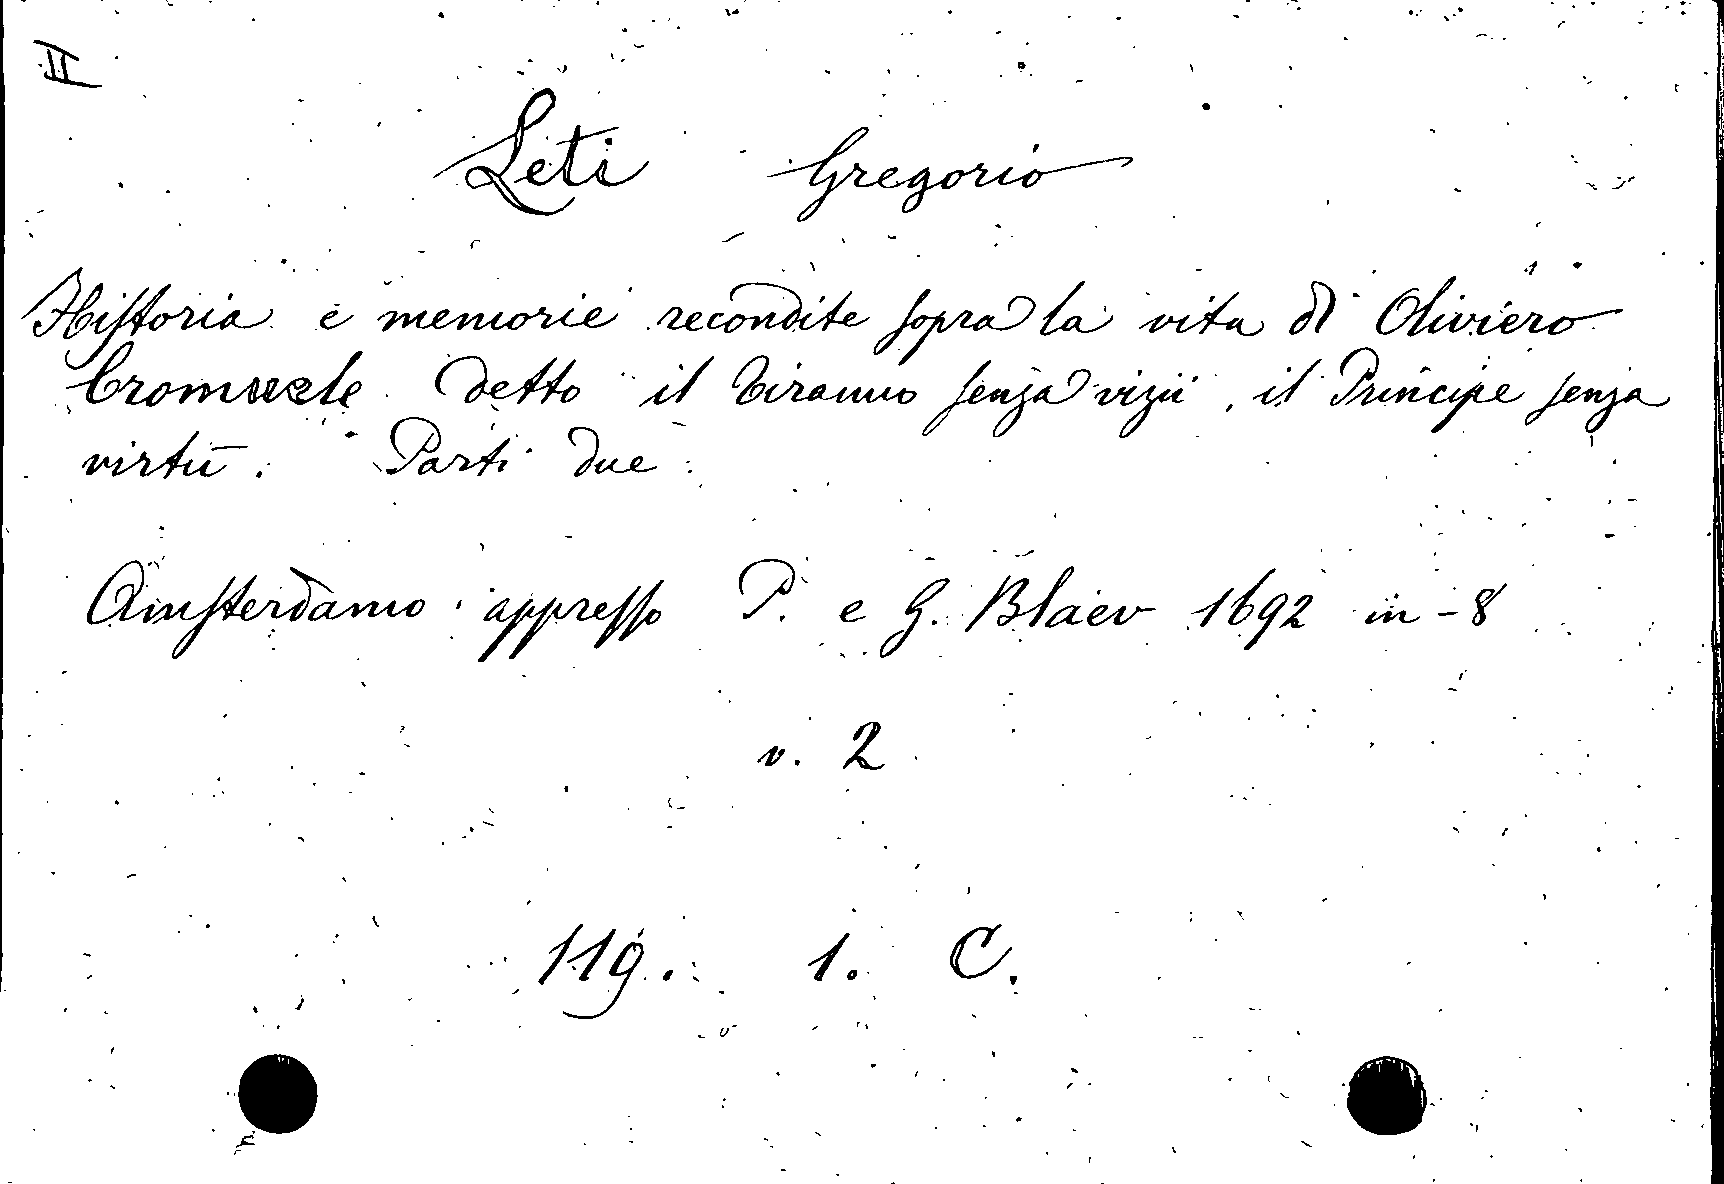 II
Leti Gregorio
Historia e memorie recondite sopra la vita di Oliviero
Cromvele detto il Tiranno senza vizii, il Principe senza
virtù. Parti due
Amsterdamo appresso P. e G. Blaev 1692 in-8
v. 2
119. 1. C.